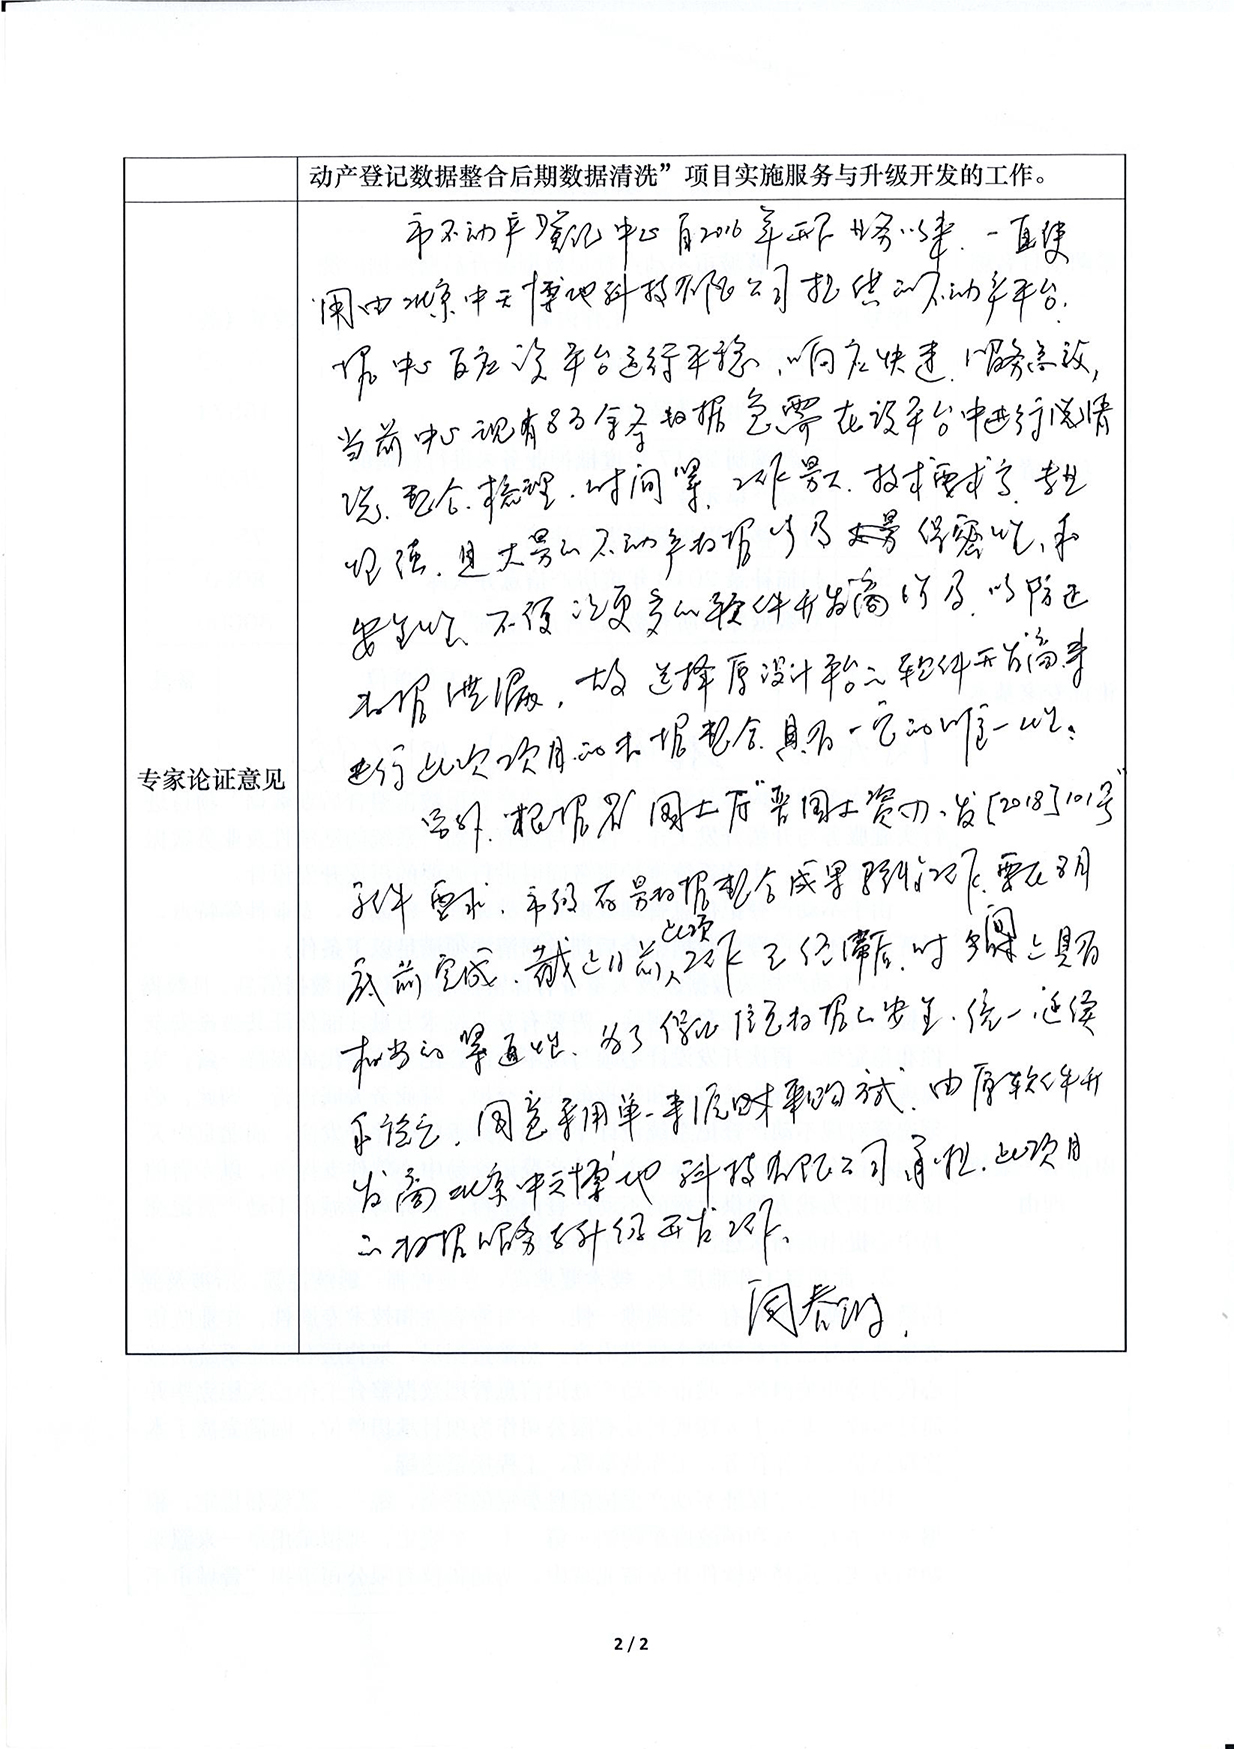 动产登记数据整合后期数据清洗”项目实施服务与升级开发的工作。
专家论证意见
市不动产登记中心自2016年开展业务以来、一直使
用由北京中天博地科技有限公司提供的不动产平台.
据中心反应该平台运行平稳、响应快速、服务高效,
当前中心现有8万余条数据急需在该平台中进行清
洗、整合、梳理、时间紧、工作量大、技术要求高、专业
性强、且大量的不动产数据涉及大量保密性、和
安全性、不便让更多的软件开发商涉及、以防止
数据泄漏, 故选择原设计平台的软件开发商来
进行此次项目的数据整合具有一定的唯一性;
另外, 根据省国土厅“晋国土资办发[2018]101号”
文件要求、市级存量数据整合成果汇交工作、要在8月
底前完成、截止目前此项工作已经滞后、时间上具有
相当的紧迫性、为了保证信息数据的安全、统一延续
和稳定, 同意采用单一来源的采购方式、由原软件开
发商北京中天博地科技有限公司承担此项目
的数据服务与升级开发工作。
闫春
2 / 2